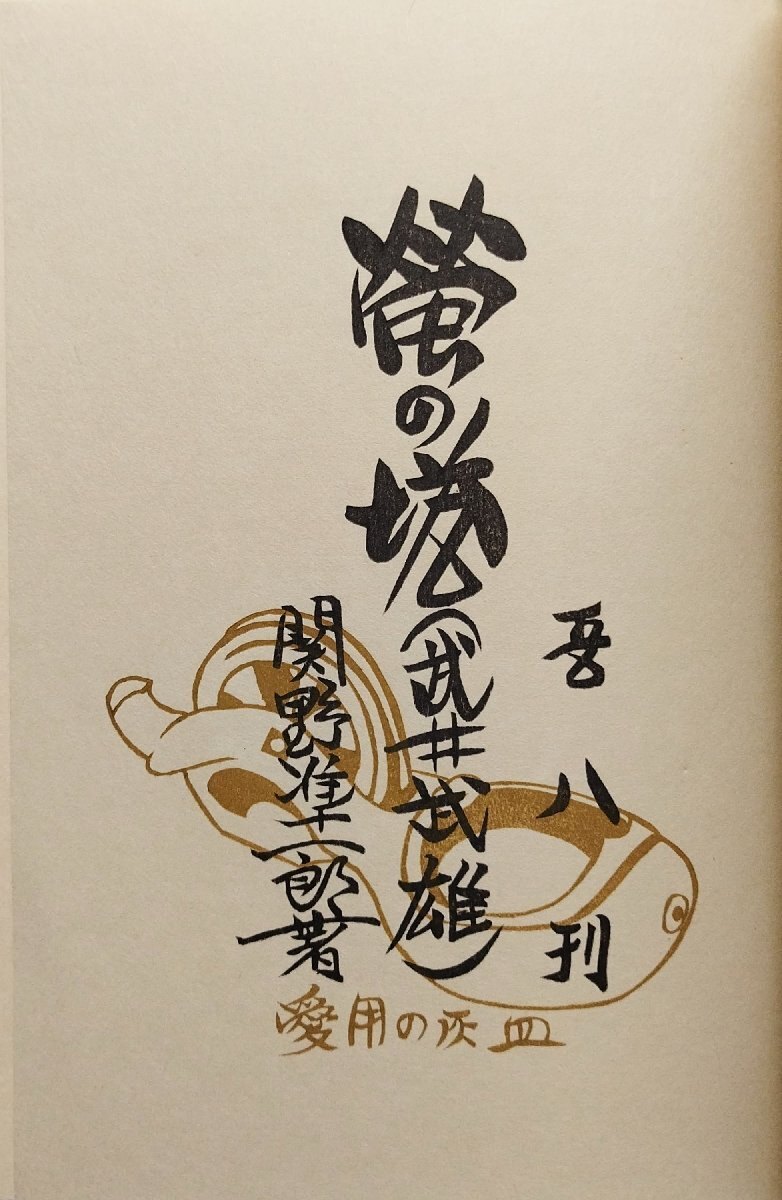 螢の塔(武井武雄)
関野凖一郎著
吾八刊
愛用の灰皿